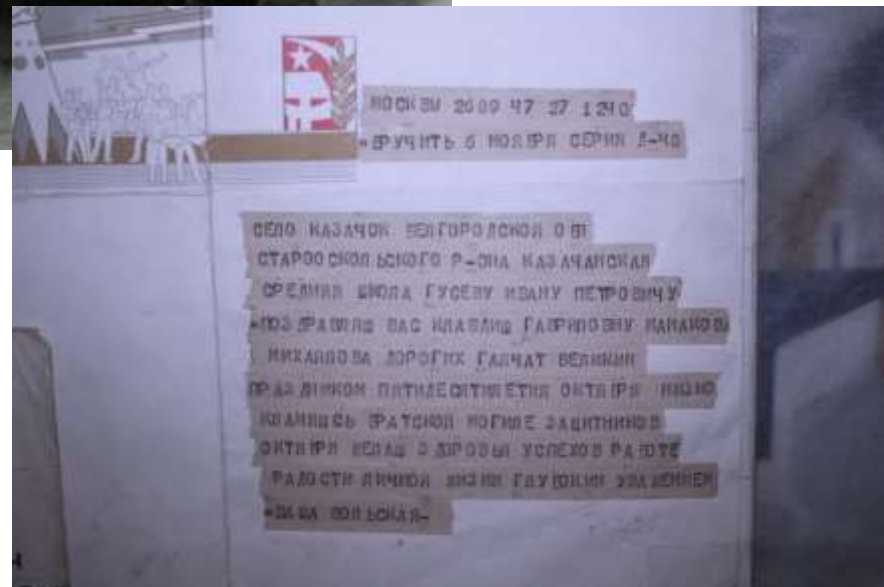 МОСКВЫ 2609 47 27 1240
=ВРУЧИТЬ 6 НОЯБРЯ СЕРИЯ Л-ЧА
СЕЛО КАЗАЧОК БЕЛГОРОДСКОЙ ОБЛ
СТАРООСКОЛЬСКОГО Р-ОНА КАЗАЧАНСКАЯ
СРЕДНЯЯ ШКОЛА ГУСЕВУ ИВАНУ ПЕТРОВИЧУ
=ПОЗДРАВЛЯЮ ВАС КЛАВДИЮ ГАВРИЛОВНУ
МИХАЙЛОВА ДОРОГИХ ГАЛЧАТ ВЕЛИКИМ
ПРАЗДНИКОМ ПЯТИДЕСЯТИЛЕТИЯ ОКТЯБРЯ НИЗКО
КЛАНЯЮСЬ БРАТСКОЙ МОГИЛЕ ЗАЩИТНИКОВ
ОКТЯБРЯ ЖЕЛАЮ ЗДОРОВЬЯ УСПЕХОВ РАБОТЕ
РАДОСТИ ЛИЧНОЙ ЖИЗНИ ГЛУБОКИМ УВАЖЕНИЕМ
=ВАША ВОЛЬСКАЯ-